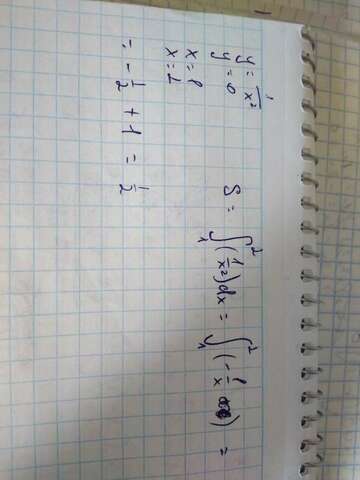 y = 1/x²
y = 0
x = 1
x = 2
S = ∫₁² (1/x²)dx = ∫₁² (-1/x) =
= -1/2 + 1 = 1/2